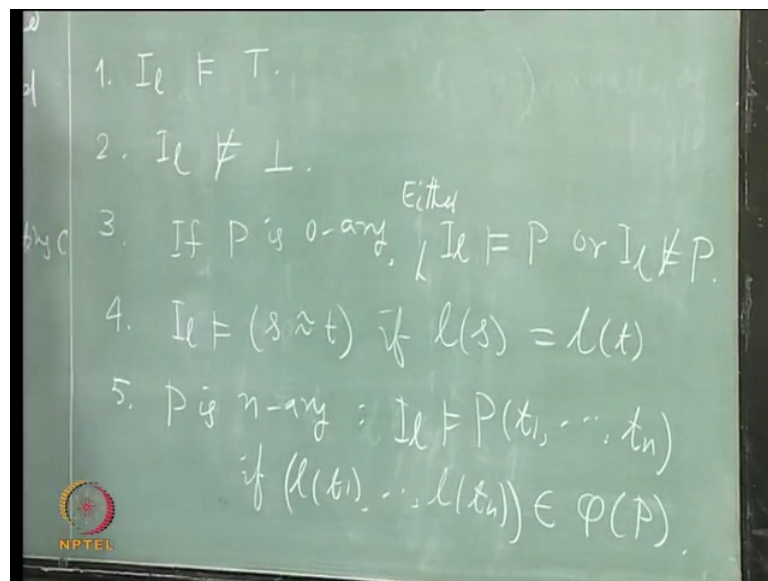 1. Iℓ ⊨ ⊤.
2. Iℓ ⊭ ⊥.
Either
3. If P is 0-ary, Iℓ ⊨ P or Iℓ ⊭ P.
4. Iℓ ⊨ (s ≈ t) if ℓ(s) = ℓ(t)
5. P is n-ary : Iℓ ⊨ P(t₁, ..., tₙ)
if (ℓ(t₁), ..., ℓ(tₙ)) ∈ φ(P).
NPTEL